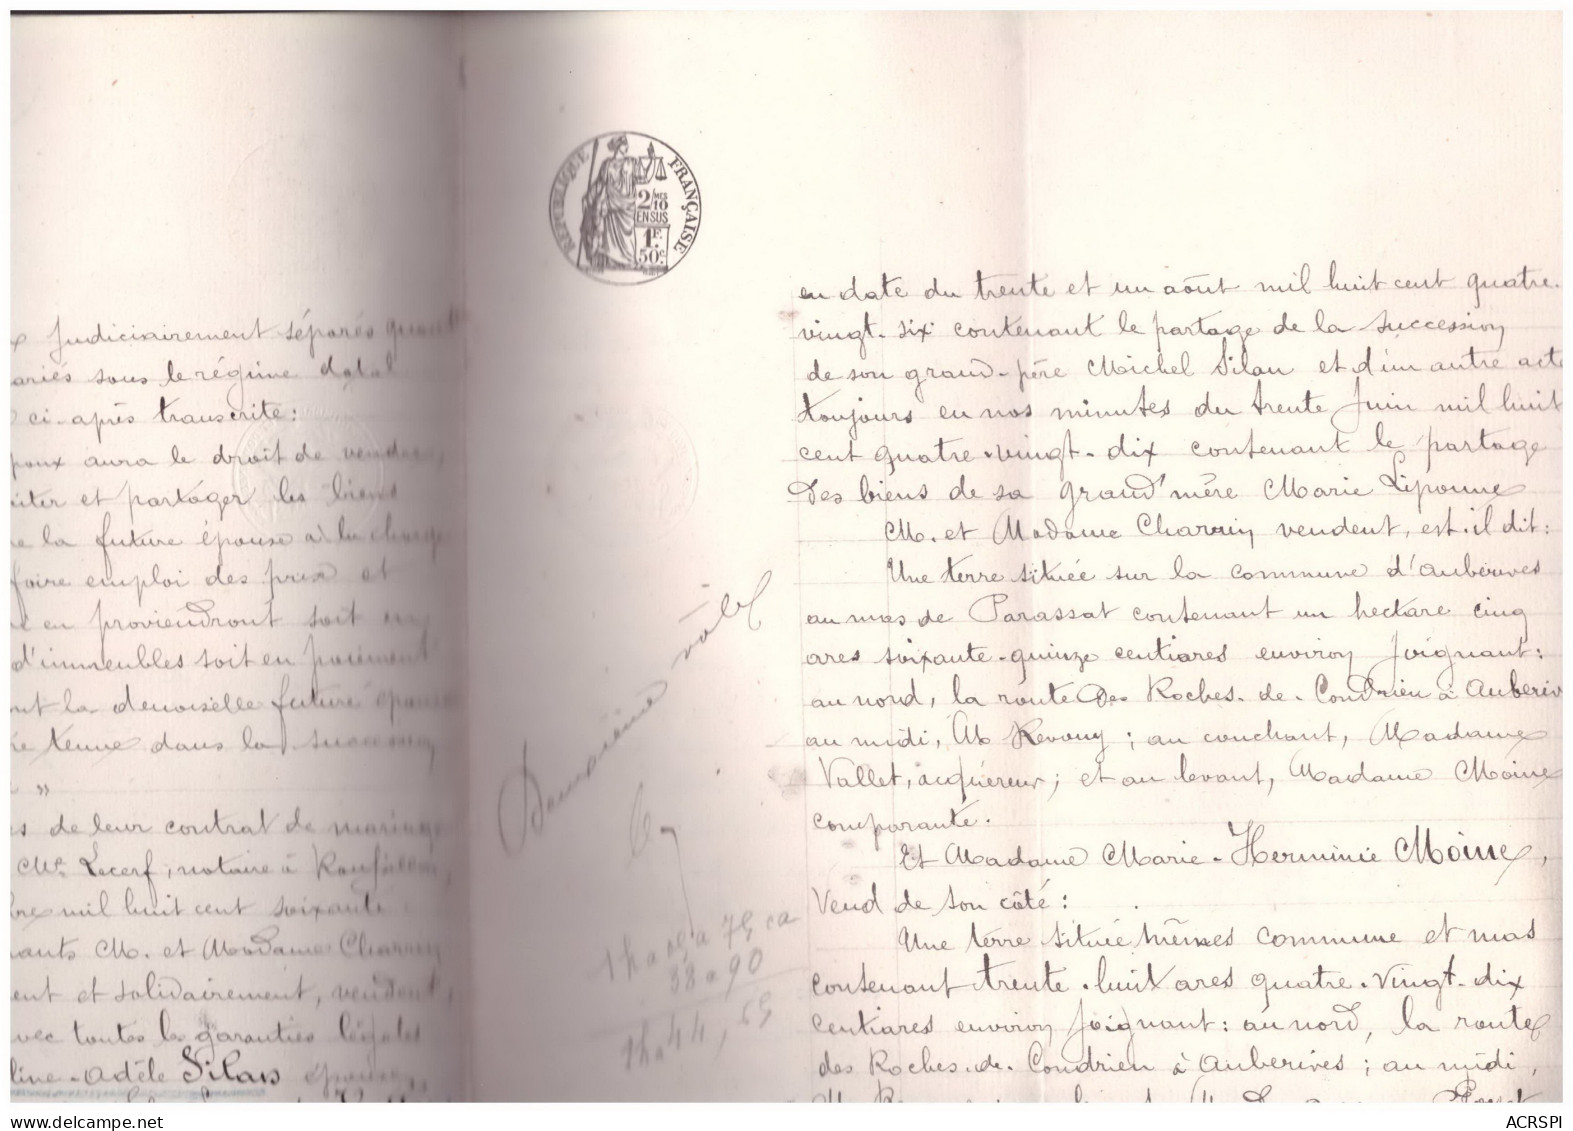 x Judiciairement séparés quant
ariés sous le régime dotal
ci-après transcrite:
poux aura le droit de vendre,
et partager les biens
e la future épouse à la charge
faire emploi des prix et
en proviendront soit en
d'immeubles soit en paiement
nt la demoiselle future épouse
re tenue dans la succession
"
s de leur contrat de mariage
Me Lecerf, notaire à
bre mil huit cent soixante
nants M. et Madame Charvin
ent et solidairement, vendent,
vec toutes les garanties légales
line-Adèle Silan épouse
RÉPUBLIQUE FRANÇAISE
2/10 MES
EN SUS
1F.
50c.
Deuxième rôle
1ha 05a 75ca
38a 90
1ha 44, 65
en date du trente et un août mil huit cent quatre-
vingt-six contenant le partage de la succession
de son grand-père Michel Silan et d'un autre acte
toujours en nos minutes du trente Juin mil huit
cent quatre-vingt-dix contenant le partage
des biens de sa grand'mère Marie Liponne
M. et Madame Charvin vendent, est-il dit:
Une terre située sur la commune d'Auberives
au mas de Parassat contenant un hectare cinq
ares soixante-quinze centiares environ Joignant:
au nord, la route des Roches-de-Condrien à Auberiv
au midi, M Revouy; au couchant, Madame
Vallet, acquéreur; et au levant, Madame Moine
comparante.
Et Madame Marie-Herminie Moine,
Vend de son côté:
Une terre située mêmes commune et mas
contenant trente-huit ares quatre-vingt-dix
centiares environ Joignant: au nord, la route
des Roches-de-Condrien à Auberives; au midi,